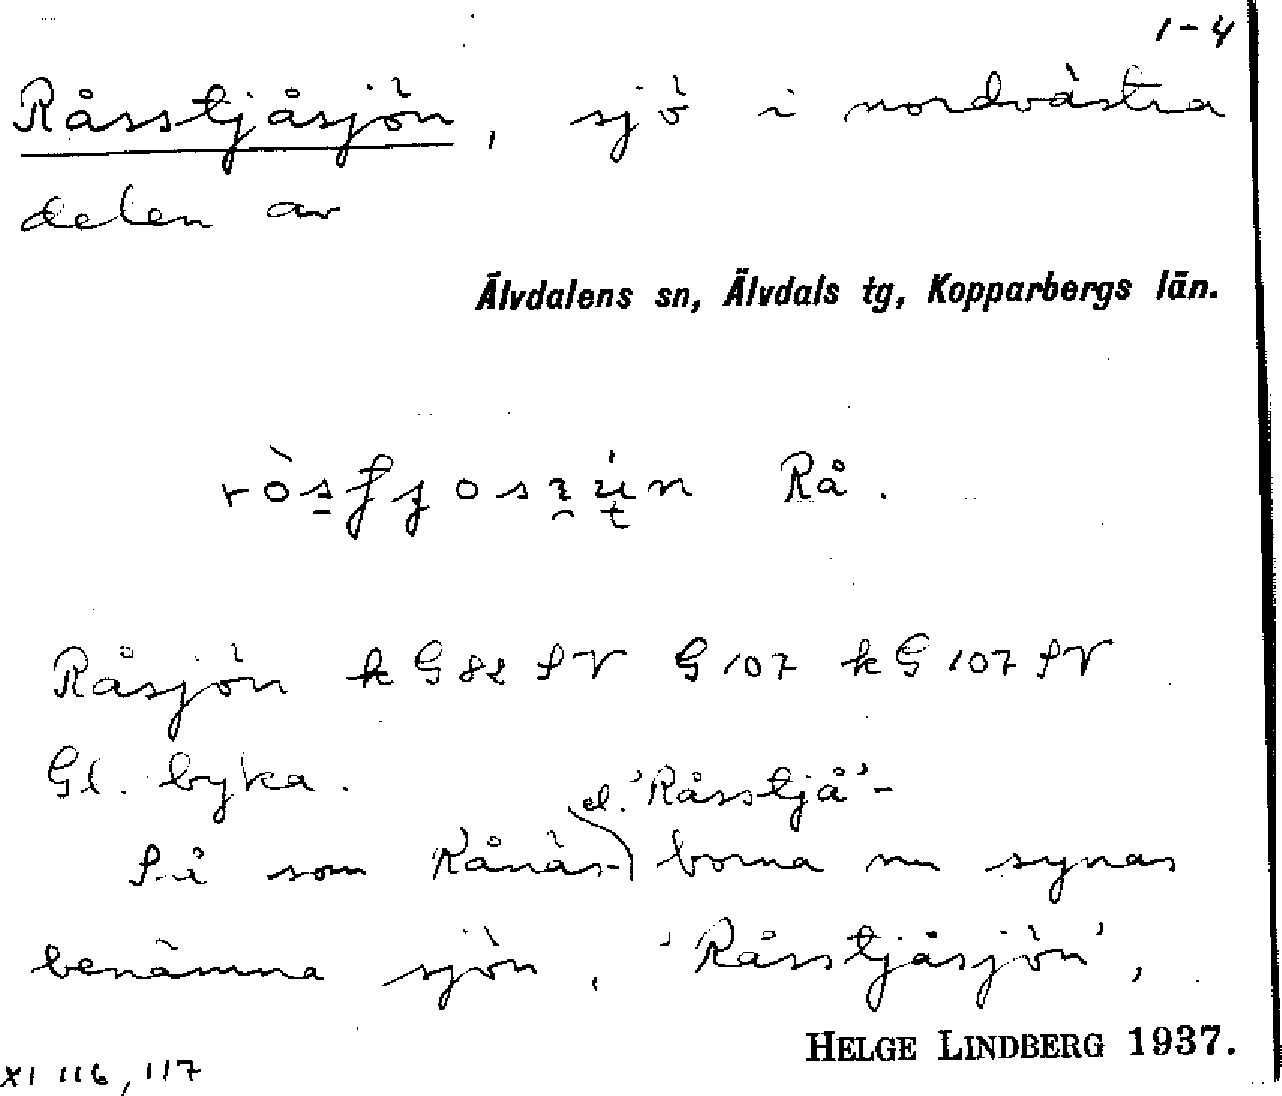 1-4
Råsstjåsjön, sjö i nordvästra
delen av
Älvdalens sn, Älvdals tg, Kopparbergs län.
Rå.
Råsjön k G 82 SV G 107 k G 107 SV
Gl. byka.
el. 'Råsstjå'-
Så som Rånäs- borna nu synas
benämna sjön, 'Råsstjåsjön',
HELGE LINDBERG 1937.
XI 116, 117